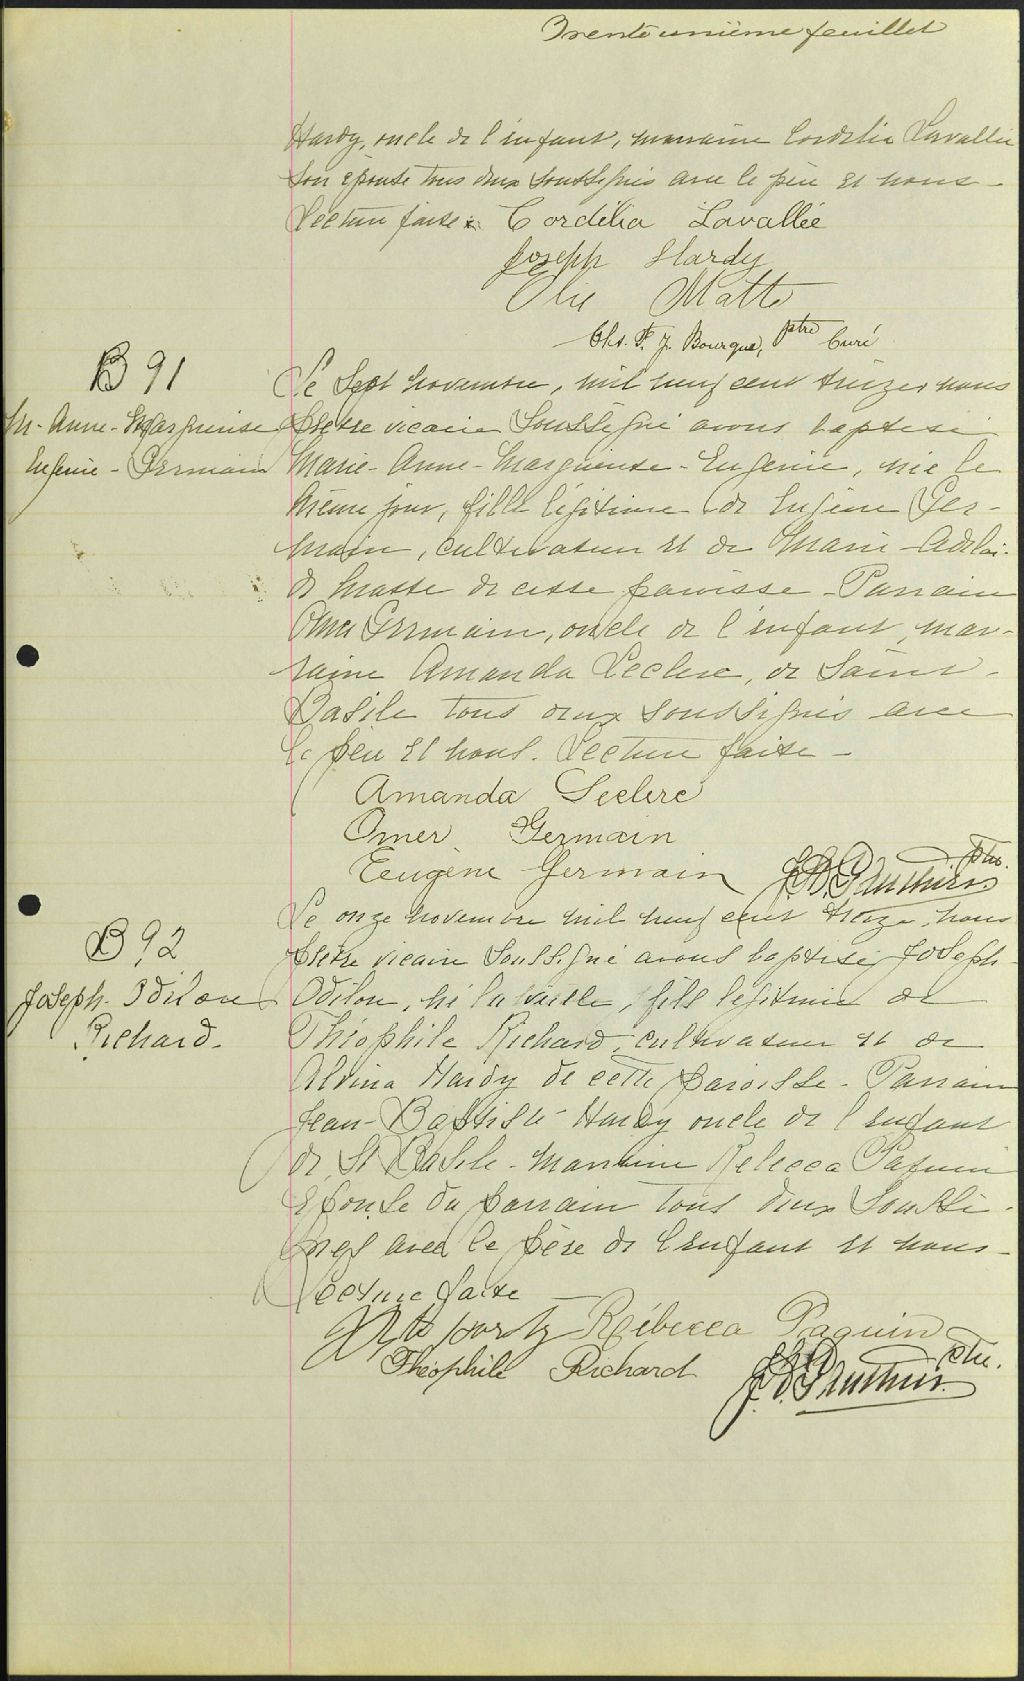 Trente unième feuillet
Hardy, oncle de l'enfant, marraine Cordélia Lavallée
son épouse tous deux soussignés avec le père et nous.
Lecture faite. Cordélia Lavallée
Joseph Hardy
Elie Matte
Chs. F. J. Bourque, ptre Curé
B 91
M- Anne- Marguerite
Eugénie- Germain
Le sept novembre, mil neuf cent treize nous
prêtre vicaire soussigné avons baptisé
Marie- Anne- Marguerite- Eugénie, née le
même jour, fille légitime de Eugène Ger-
main, cultivateur et de Marie- Adélaï-
de Matte de cette paroisse- Parrain
Omer Germain, oncle de l'enfant, mar-
raine Amanda Leclerc, de Saint-
Basile tous deux soussignés avec
le père et nous. Lecture faite-
Amanda Leclerc
Omer Germain
Eugène Germain
J.B. Gauthier ptre.
B 92
Joseph- Odilon
Richard.
Le onze novembre mil neuf cent treize, nous
prêtre vicaire soussigné avons baptisé Joseph-
Odilon, né la veille, fils légitime de
Théophile Richard, cultivateur et de
Alvina Hardy de cette paroisse- Parrain
Jean- Baptiste- Hardy oncle de l'enfant
de St Basile- marraine Rebecca Paquin
épouse du parrain tous deux soussi-
gnés avec le père de l'enfant et nous-
Lecture faite
Hardy Rébecca Paquin
Théophile Richard
J.B. Gauthier ptre.